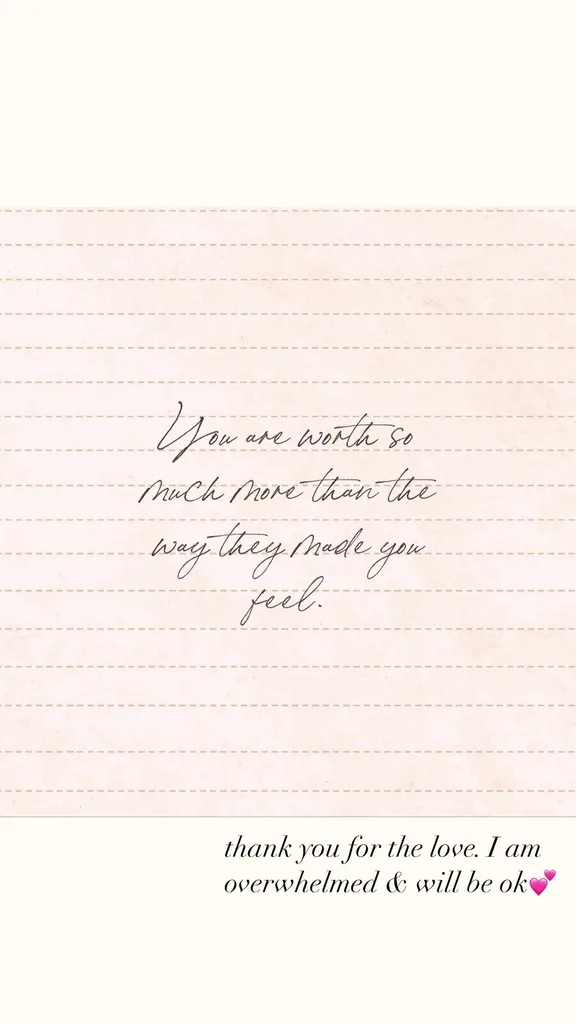 You are worth so
much more than the
way they made you
feel.
thank you for the love. I am
overwhelmed & will be ok💕